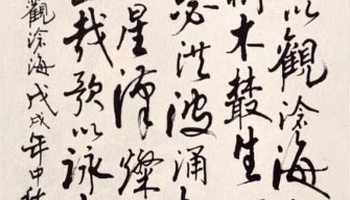 以觀滄海
樹木叢生
瑟洪波涌
星漢燦
哉歌以詠
觀滄海戊戌年中秋